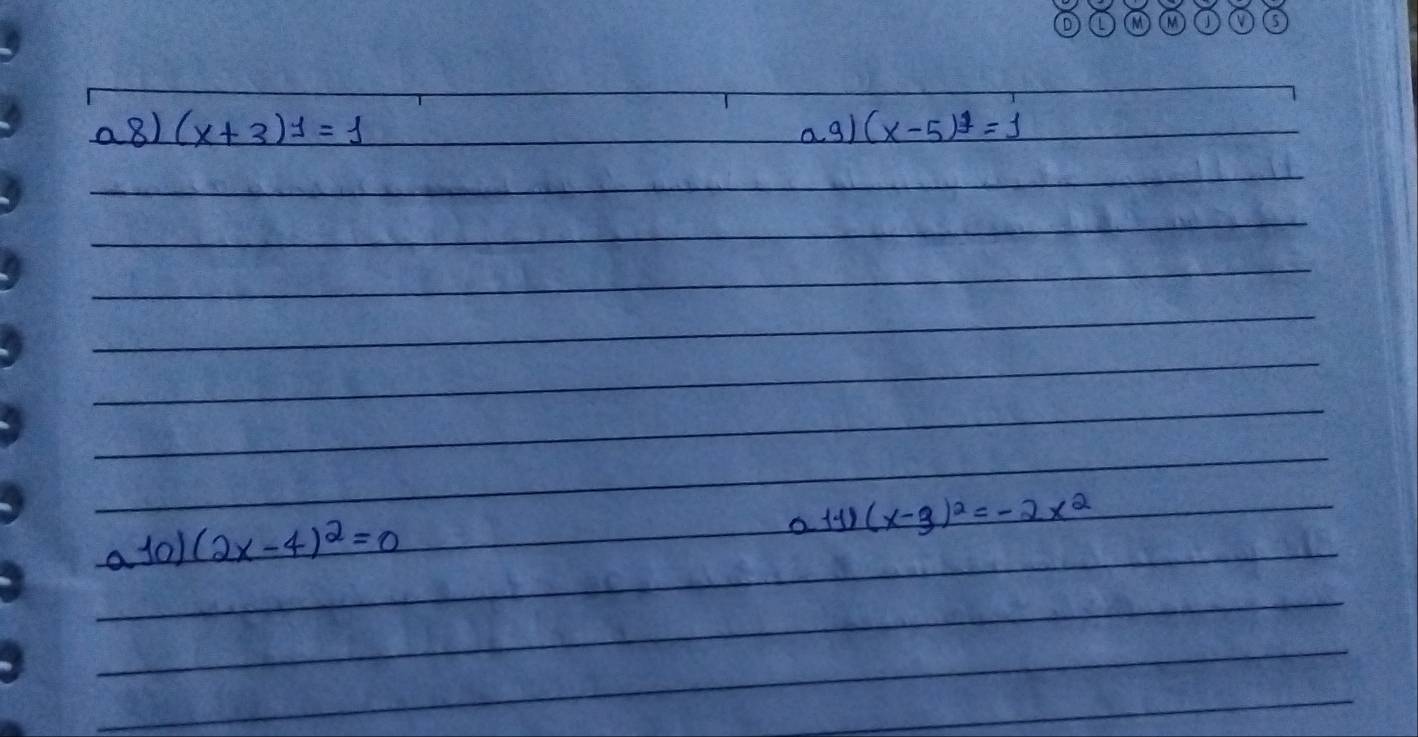 D L M M J V S
a8) (x+3)¹=1 a9) (x-5)¹=1
a10) (2x-4)²=0 a11) (x-3)²=-2x²